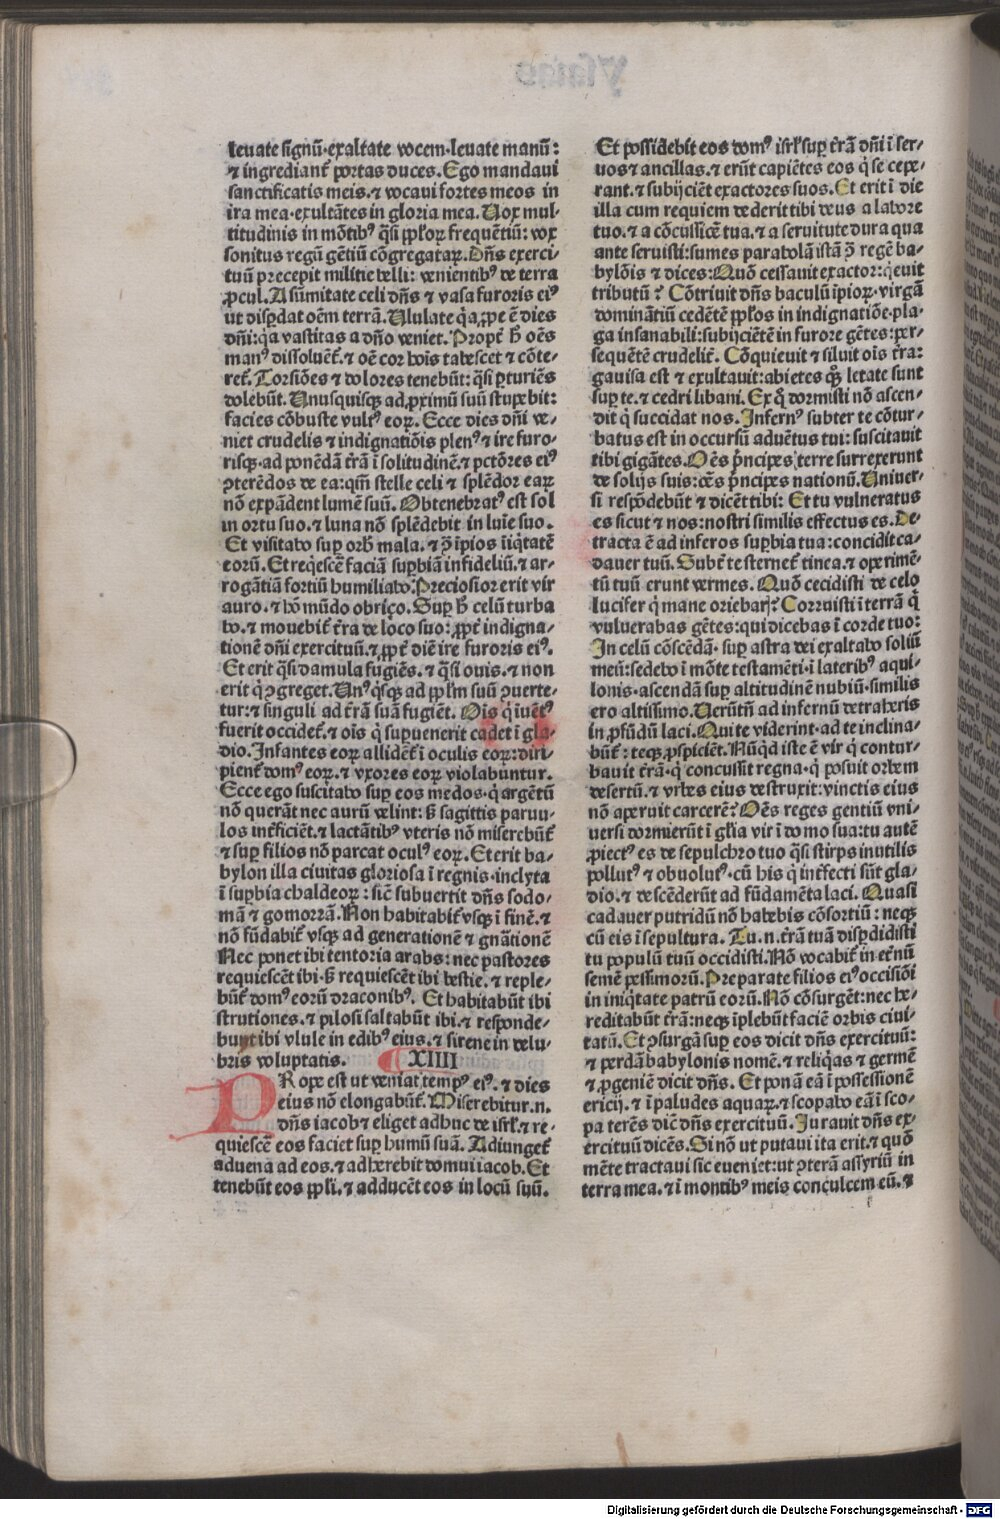 leuate signū·exaltate vocem·leuate manū:
⁊ ingrediant᷑ portas duces. Ego mandaui
sanctificatis meis.⁊ vocaui fortes meos in
ira mea·exultātes in gloria mea. Uox mul-
titudinis in mōtibꝰ q̄si ppl̓oꝝ frequētiū: vox
sonitus regū gētiū cōgregataꝝ. Dn̄s exerci-
tuū precepit militie belli: venientibꝰ de terra
ꝓcul. A sūmitate celi dn̄s ⁊ vasa furoris eiꝰ
ut disꝑdat oēm terrā. Ululate q̇a ꝓpe ē dies
dn̄i:q̇a vastitas a dn̄o veniet. Propt̓ h̄ oēs
manꝰ dissoluēt᷑.⁊ oē cor hoīs tabescet ⁊ cōte-
ret᷑. Torsiōes ⁊ dolores tenebūt: q̄si ꝑturiēs
dolebūt. Unusquisqꝫ ad ꝓximū suū stupebit:
facies cōbuste vultꝰ eoꝝ. Ecce dies dn̄i ve-
niet crudelis ⁊ indignatiōis plenꝰ ⁊ ire furo-
risqꝫ·ad ponēdā t̓rā ī solitudinē.⁊ pctōres eiꝰ
ꝯterēdos de ea:qm̄ stelle celi ⁊ splēdor eaꝝ
nō expādent lumē suū. Obtenebratꝰ est sol
in ortu suo.⁊ luna nō splēdebit in luīe suo.
Et visitabo suꝑ orb̄ mala.⁊ ꝯ̄ ipios īiq̇tatē
eorū. Et req̇escē faciā suꝑbiā infideliū.⁊ ar-
rogātiā fortiū humiliabo. Preciosior erit vir
auro.⁊ hō mūdo obriço. Suꝑ h̄ celū turba
bo.⁊ mouebit᷑ t̓ra de loco suo: ꝓpt̓ indigna-
tionē dn̄i exercituū.⁊ ꝓpt̓ diē ire furoris eiꝰ.
Et erit q̄si damula fugiēs.⁊ q̄si ouis.⁊ non
erit q̇ ꝯgreget. Unꝰ q̇sqꝫ ad ppl̓m suū ꝯuerte-
tur:⁊ singuli ad t̓rā suā fugiēt. Oīs q̇ īuētꝰ
fuerit occidet᷑.⁊ oīs q̇ suꝑuenerit cadet ī gla-
dio. Infantes eoꝝ allident᷑ ī oculis eoꝝ:diri-
pient᷑ domꝰ eoꝝ.⁊ vxores eoꝝ violabuntur.
Ecce ego suscitabo suꝑ eos medos·q̇ argētū
nō querāt nec aurū velint: s̄ sagittis paruu-
los int̓ficiēt.⁊ lactātibꝰ vteris nō miserebūt᷑
⁊ suꝑ filios nō parcat oculꝰ eoꝝ. Et erit ba-
bylon illa ciuitas gloriosa ī regnis·inclyta
ī suꝑbia chaldeoꝝ: sic̄ subuertit dn̄s sodo-
mā ⁊ gomorrā. Non habitabit᷑ vsqꝫ ī finē.⁊
nō fūdabit᷑ vsqꝫ ad generationē ⁊ gn̄ationē
Nec ponet ibi tentoria arabs: nec pastores
requiescēt ibi·s̄ requiescēt ibi bestie.⁊ reple-
būt᷑ domꝰ eorū draconibꝰ. Et habitabūt ibi
strutiones.⁊ pilosi saltabūt ibi.⁊ responde-
bunt ibi vlule in edibꝰ eius.⁊ sirene in delu-
bris voluptatis. XIIII
PRope est ut veniat tempꝰ eiꝰ.⁊ dies
eius nō elongabūt᷑. Miserebitur.n.
dn̄s iacob ⁊ eliget adhuc de isrl̓.⁊ re-
quiescē eos faciet suꝑ humū suā. Adiunget᷑
aduena ad eos.⁊ adherebit domui iacob. Et
tenebūt eos ppl̓i.⁊ adducēt eos in locū suū.
Et possidebit eos domꝰ isrl̓ suꝑ t̓rā dn̄i ī ser-
uos ⁊ ancillas.⁊ erūt capiētes eos q̇ se cepe-
rant.⁊ subijciēt exactores suos. Et erit ī die
illa cum requiem dederit tibi deus a labore
tuo.⁊ a cōcussiōe tua.⁊ a seruitute dura qua
ante seruisti:sumes parabolā istā ꝯ̄ regē ba-
bylōis ⁊ dices: Quō cessauit exactor:q̇euit
tributū? Cōtriuit dn̄s baculū īpioꝝ·virgā
dominātiū cedētē ppl̓os in indignatiōe·pla-
ga insanabili:subijciētē in furore gētes:per-
sequētē crudelit̓. Cōquieuit ⁊ siluit oīs t̓ra:
gauisa est ⁊ exultauit:abietes qꝫ letate sunt
suꝑ te.⁊ cedri libani. Ex q̊ dormisti nō ascen-
dit q̇ succidat nos. Infernꝰ subter te cōtur-
batus est in occursū aduētus tui: suscitauit
tibi gigātes. Oēs p̄ncipes terre surrexerunt
de solijs suis: oēs p̄ncipes nationū. Uniuer-
si respōdebūt ⁊ dicēt tibi: Et tu vulneratus
es sicut ⁊ nos:nostri similis effectus es. De-
tracta ē ad inferos suꝑbia tua: concidit ca-
dauer tuū. Subt̓ te sternet᷑ tinea.⁊ operimē-
tū tuū erunt vermes. Quō cecidisti de celo
lucifer q̇ mane oriebaris? Corruisti ī terrā q̇
vulnerabas gētes:qui dicebas ī corde tuo:
In celū cōscēdā· suꝑ astra dei exaltabo soliū
meū:sedebo ī mōte testamēti·ī lateribꝰ aqui-
lonis·ascendā suꝑ altitudinē nubiū·similis
ero altissimo. Uerūtn̄ ad infernū detraheris
in ꝓfūdū laci. Qui te viderint·ad te inclina-
būt᷑: teqꝫ ꝓspiciēt. Nūq̇d iste ē vir q̇ contur-
bauit t̓rā·q̇ concussit regna·q̇ posuit orbem
desertū.⁊ vrbes eius destruxit: vinctis eius
nō aperuit carcerē? Oēs reges gentiū vni-
uersi dormierūt ī gl̓ia vir ī domo sua:tu autē
ꝓiectꝰ es de sepulchro tuo q̄si stirps inutilis
pollutꝰ ⁊ obuolutꝰ·cū his q̇ int̓fecti sūt gla-
dio.⁊ descēderūt ad fūdamēta laci. Quasi
cadauer putridū nō habebis cōsortiū: neqꝫ
cū eis ī sepultura. Tu.n.t̓rā tuā disꝑdidisti
tu populū tuū occidisti. Nō vocabit᷑ in et̓nū
semē pessimorū. Preparate filios eiꝰ occisiōi
in iniq̇tate patrū eorū. Nō cōsurgēt: nec he-
reditabūt t̓rā: neqꝫ īplebūt faciē orbis ciui-
tatū. Et ꝯsurgā suꝑ eos dicit dn̄s exercituū:
⁊ perdā babylonis nomē.⁊ reliq̇as ⁊ germē
⁊ ꝓgeniē dicit dn̄s. Et ponā eā ī possessionē
ericij.⁊ ī paludes aquaꝝ.⁊ scopabo eā ī sco-
pa terēs dic̄ dn̄s exercituū. Iurauit dn̄s ex-
ercituū dicēs. Si nō ut putaui ita erit.⁊ quō
mēte tractaui sic eueniet:ut ꝯterā assyriū in
terra mea.⁊ ī montibꝰ meis conculcem eū.⁊
Digitalisierung gefördert durch die Deutsche Forschungsgemeinschaft - DFG